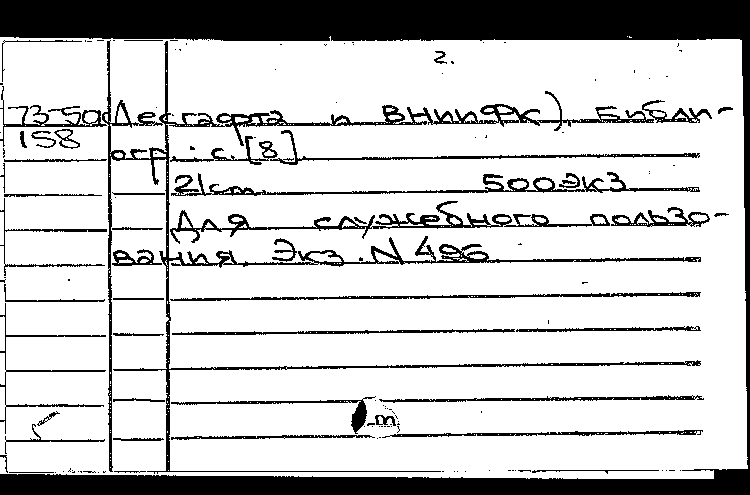 2.
73-50 Лесгафта и ВНИИФК). Библи-
158 огр.: с. [8].
21cm. 500экз
Для служебного пользо-
вания. Экз. N 496